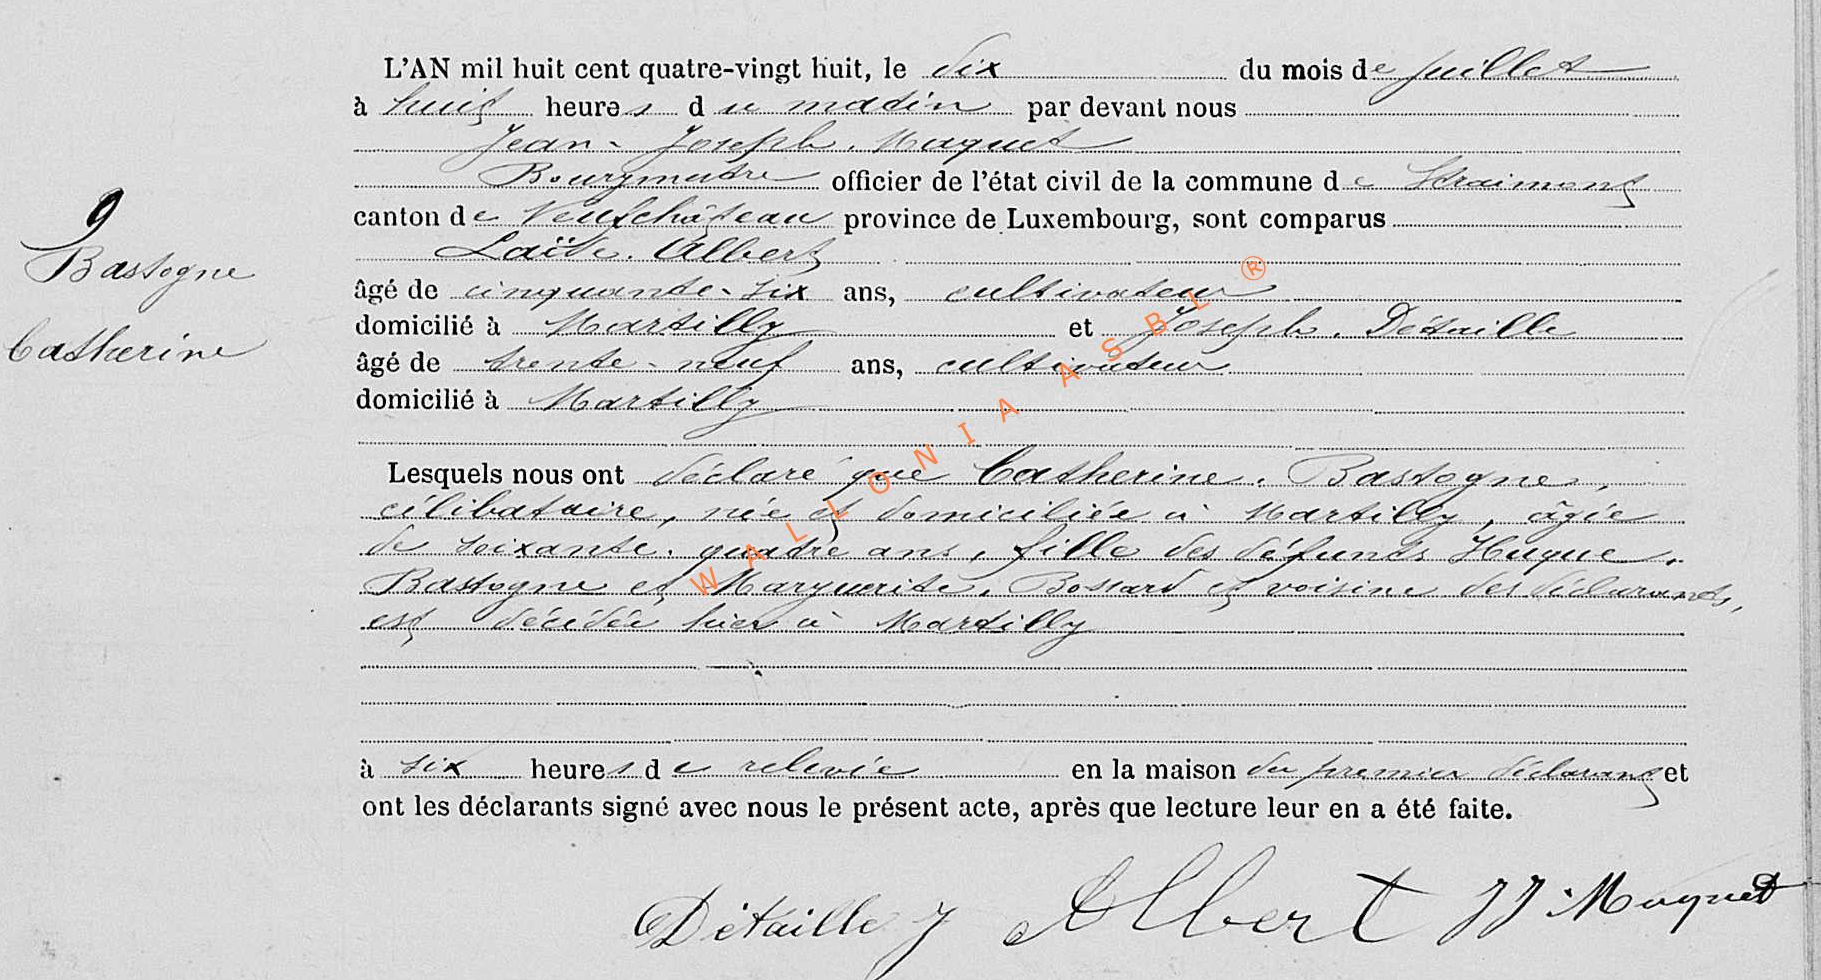 L'AN mil huit cent quatre-vingt huit, le dix du mois de juillet
à huit heures du matin par devant nous
Jean-Joseph. Maquet
Bourgmestre officier de l'état civil de la commune de Straimont
canton de Neufchâteau province de Luxembourg, sont comparus
Albert
âgé de cinquante-six ans, cultivateur
domicilié à Martilly et Joseph. Détaille
âgé de trente-neuf ans, cultivateur
domicilié à Martilly
9
Bastogne
Catherine
Lesquels nous ont déclaré que Catherine. Bastogne,
célibataire, née et domiciliée à Martilly, âgée
de soixante-quatre ans, fille des défunts Hugue.
Bastogne et Marguerite. Bossard et voisine des déclarants,
est décédée hier à Martilly
à six heures de relevée en la maison du premier déclarant et
ont les déclarants signé avec nous le présent acte, après que lecture leur en a été faite.
Détaille J Albert JJ Maquet
WALLONIA ASBL ®